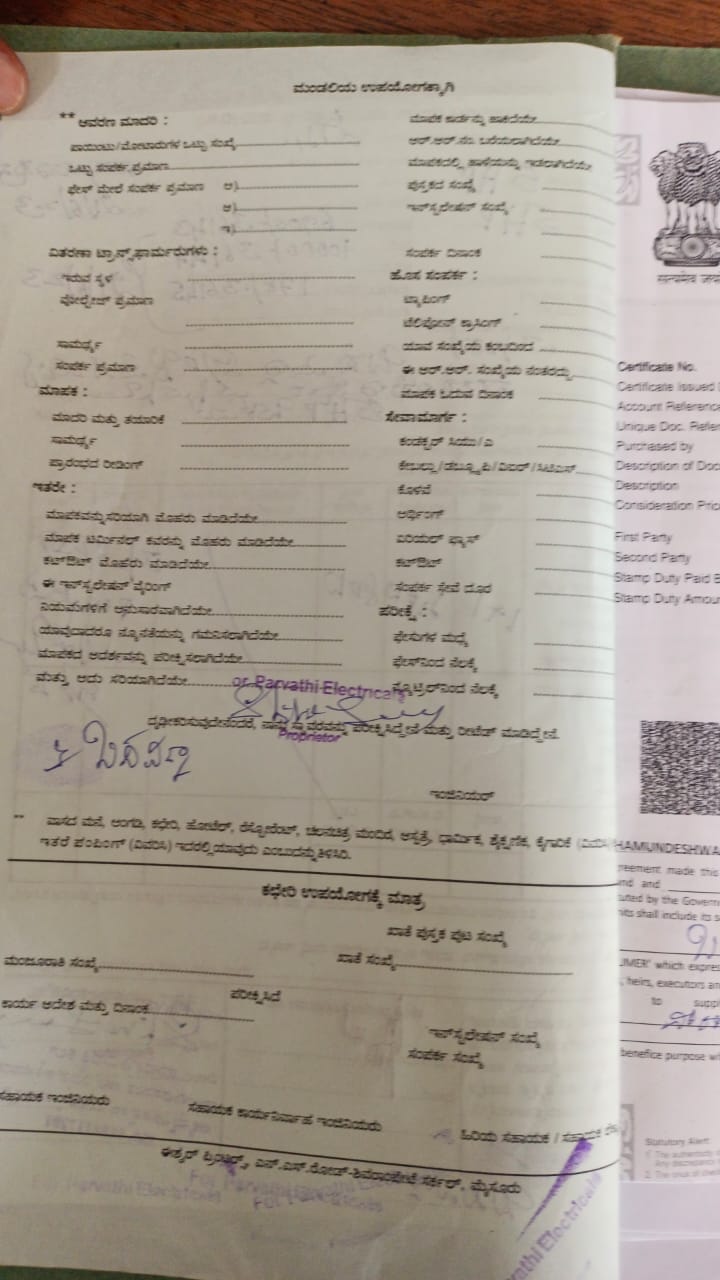 ಮಂಡಲಿಯ ಉಪಯೋಗಕ್ಕಾಗಿ
** ಆವರಣ ಮಾದರಿ :
ಪಾಯಿಂಟು/ಮೋಟಾರುಗಳ ಒಟ್ಟು ಸಂಖ್ಯೆ
ಒಟ್ಟು ಸಂಪರ್ಕ ಪ್ರಮಾಣ
ಫೇಸ್ ಮೇಲೆ ಸಂಪರ್ಕ ಪ್ರಮಾಣ ಅ)
ಆ)
ಇ)
ವಿತರಣಾ ಟ್ರಾನ್ಸ್‌ಫಾರ್ಮರುಗಳು :
ಇರುವ ಸ್ಥಳ
ವೋಲ್ಟೇಜ್ ಪ್ರಮಾಣ
ಸಾಮರ್ಥ್ಯ
ಸಂಪರ್ಕ ಪ್ರಮಾಣ
ಮಾಪಕ :
ಮಾದರಿ ಮತ್ತು ತಯಾರಿಕೆ
ಸಾಮರ್ಥ್ಯ
ಪ್ರಾರಂಭದ ರೀಡಿಂಗ್
ಇತರೇ :
ಮಾಪಕವನ್ನು ಸರಿಯಾಗಿ ಮೊಹರು ಮಾಡಿದೆಯೇ
ಮಾಪಕ ಟರ್ಮಿನಲ್ ಕವರನ್ನು ಮೊಹರು ಮಾಡಿದೆಯೇ
ಕಟ್‌ಔಟ್ ಮೊಹರು ಮಾಡಿದೆಯೇ
ಈ ಇನ್‌ಸ್ಟಲೇಷನ್ ವೈರಿಂಗ್
ನಿಯಮಗಳಿಗೆ ಅನುಸಾರವಾಗಿದೆಯೇ
ಯಾವುದಾದರೂ ನ್ಯೂನತೆಯನ್ನು ಗಮನಿಸಲಾಗಿದೆಯೇ
ಮಾಪಕದ ಆದರ್ಶವನ್ನು ಪರೀಕ್ಷಿಸಲಾಗಿದೆಯೇ
ಮತ್ತು ಅದು ಸರಿಯಾಗಿದೆಯೇ
ಮಾಪಕ ಕಾರ್ಡನ್ನು ಹಾಕಿದೆಯೇ
ಆರ್.ಆರ್.ನಂ. ಬರೆಯಲಾಗಿದೆಯೇ
ಮಾಪಕದಲ್ಲಿ ಹಾಳೆಯನ್ನು ಇಡಲಾಗಿದೆಯೇ
ಪುಸ್ತಕದ ಸಂಖ್ಯೆ
ಇನ್‌ಸ್ಟಲೇಷನ್ ಸಂಖ್ಯೆ
ಸಂಪರ್ಕ ದಿನಾಂಕ
ಹೊಸ ಸಂಪರ್ಕ :
ಟ್ಯಾಪಿಂಗ್
ಟೆಲಿಫೋನ್ ಕ್ರಾಸಿಂಗ್
ಯಾವ ಸಂಖ್ಯೆಯ ಕಂಬದಿಂದ
ಈ ಆರ್.ಆರ್. ಸಂಖ್ಯೆಯ ನಂತರದ್ದು
ಮಾಪಕ ಓದುವ ದಿನಾಂಕ
ಸೇವಾಮಾರ್ಗ :
ಕಂಡಕ್ಟರ್ ಸಿಯು/ಎ
ಕೇಬಲ್ಲು/ಡಬ್ಲ್ಯೂಪಿ/ವಿಐಆರ್/ಸಿಟಿಎಸ್
ಕೊಳವೆ
ಅರ್ಥಿಂಗ್
ಏರಿಯಲ್ ಫ್ಯೂಸ್
ಕಟ್‌ಔಟ್
ಸಂಪರ್ಕ ಸೇವೆ ದೂರ
ಪರೀಕ್ಷೆ :
ಫೇಸುಗಳ ಮಧ್ಯೆ
ಫೇಸ್‌ನಿಂದ ನೆಲಕ್ಕೆ
ನ್ಯೂಟ್ರಲ್‌ನಿಂದ ನೆಲಕ್ಕೆ
or Parvathi Electricals
Proprietor
ದೃಢೀಕರಿಸುವುದೇನೆಂದರೆ, ನಾನು ಸ್ಥಾವರವನ್ನು ಪರೀಕ್ಷಿಸಿದ್ದೇನೆ ಮತ್ತು ರೀಟೆಡ್ ಮಾಡಿದ್ದೇನೆ.
ಇಂಜಿನಿಯರ್
** ವಾಸದ ಮನೆ, ಅಂಗಡಿ, ಕಛೇರಿ, ಹೋಟೆಲ್, ರೆಸ್ಟೋರೆಂಟ್, ಚಲನಚಿತ್ರ ಮಂದಿರ, ಆಸ್ಪತ್ರೆ, ಧಾರ್ಮಿಕ, ಶೈಕ್ಷಣಿಕ, ಕೈಗಾರಿಕೆ
ಇತರೆ ಪಂಪಿಂಗ್ (ವಿವರಿಸಿ) ಇದರಲ್ಲಿ ಯಾವುದು ಎಂಬುದನ್ನು ತಿಳಿಸಿರಿ.
ಕಛೇರಿ ಉಪಯೋಗಕ್ಕೆ ಮಾತ್ರ
ಖಾತೆ ಪುಸ್ತಕ ಪುಟ ಸಂಖ್ಯೆ
ಮಂಜೂರಾತಿ ಸಂಖ್ಯೆ
ಖಾತೆ ಸಂಖ್ಯೆ
ಪರೀಕ್ಷಿಸಿದೆ
ಕಾರ್ಯ ಆದೇಶ ಮತ್ತು ದಿನಾಂಕ
ಇನ್‌ಸ್ಟಲೇಷನ್ ಸಂಖ್ಯೆ
ಸಂಪರ್ಕ ಸಂಖ್ಯೆ
ಸಹಾಯಕ ಇಂಜಿನಿಯರು
ಸಹಾಯಕ ಕಾರ್ಯನಿರ್ವಾಹ ಇಂಜಿನಿಯರು
ಹಿರಿಯ ಸಹಾಯಕ / ಸಹಾಯಕ
ಈಶ್ವರ್ ಪ್ರಿಂಟರ್ಸ್, ಎನ್.ಎಸ್.ರೋಡ್-ಶಿವರಾಂಪೇಟೆ ಸರ್ಕಲ್, ಮೈಸೂರು
For Parvathi Electricals
सत्यमेव जय
Certificate No.
Certificate Issued
Account Reference
Unique Doc. Refe
Purchased by
Description of Doc
Description
Consideration Pric
First Party
Second Party
Stamp Duty Paid B
Stamp Duty Amou
HAMUNDESHWA
reement made this
nd and
uted by the Govern
its shall include its s
UMER' which expres
, heirs, executors an
to suppl
benefice purpose w
Statutory Alert: